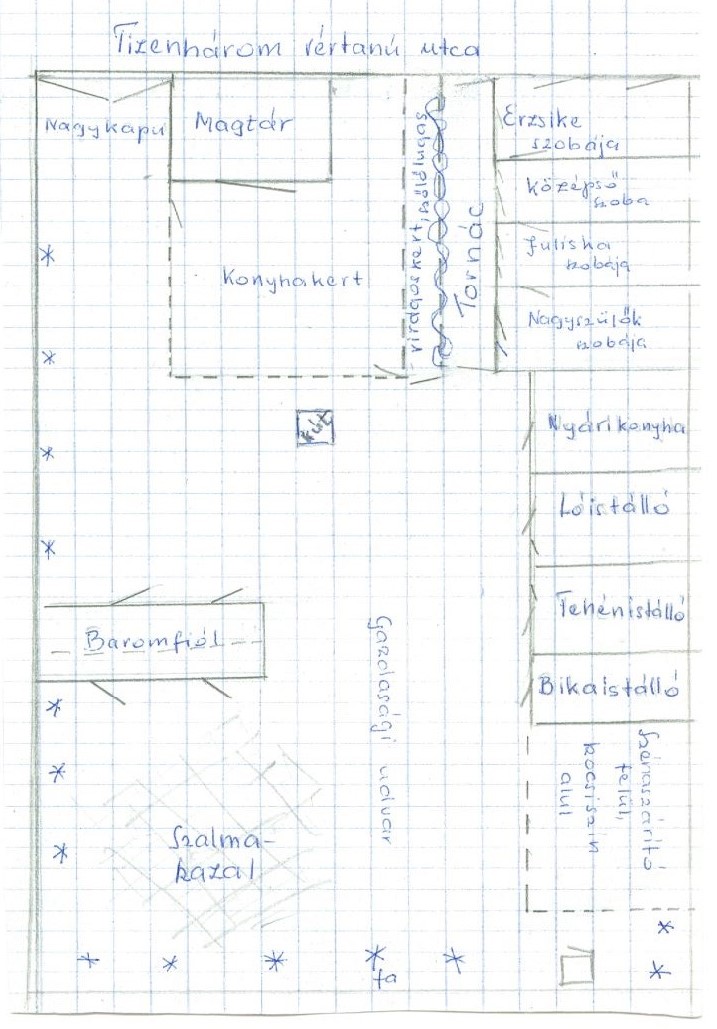 Tizenhárom vértanú utca
Nagykapu
Magtár
Konyhakert
virágoskert, szőlőlugas
Tornác
Erzsike
szobája
Középső
szoba
Juliska
szobája
Nagyszülők
szobája
kút
Nyári konyha
Lóistálló
Tehénistálló
Bikaistálló
Baromfiól
Gazdasági udvar
Szénaszárító
felül,
kocsiszín
alul
Szalma-
kazal
fa